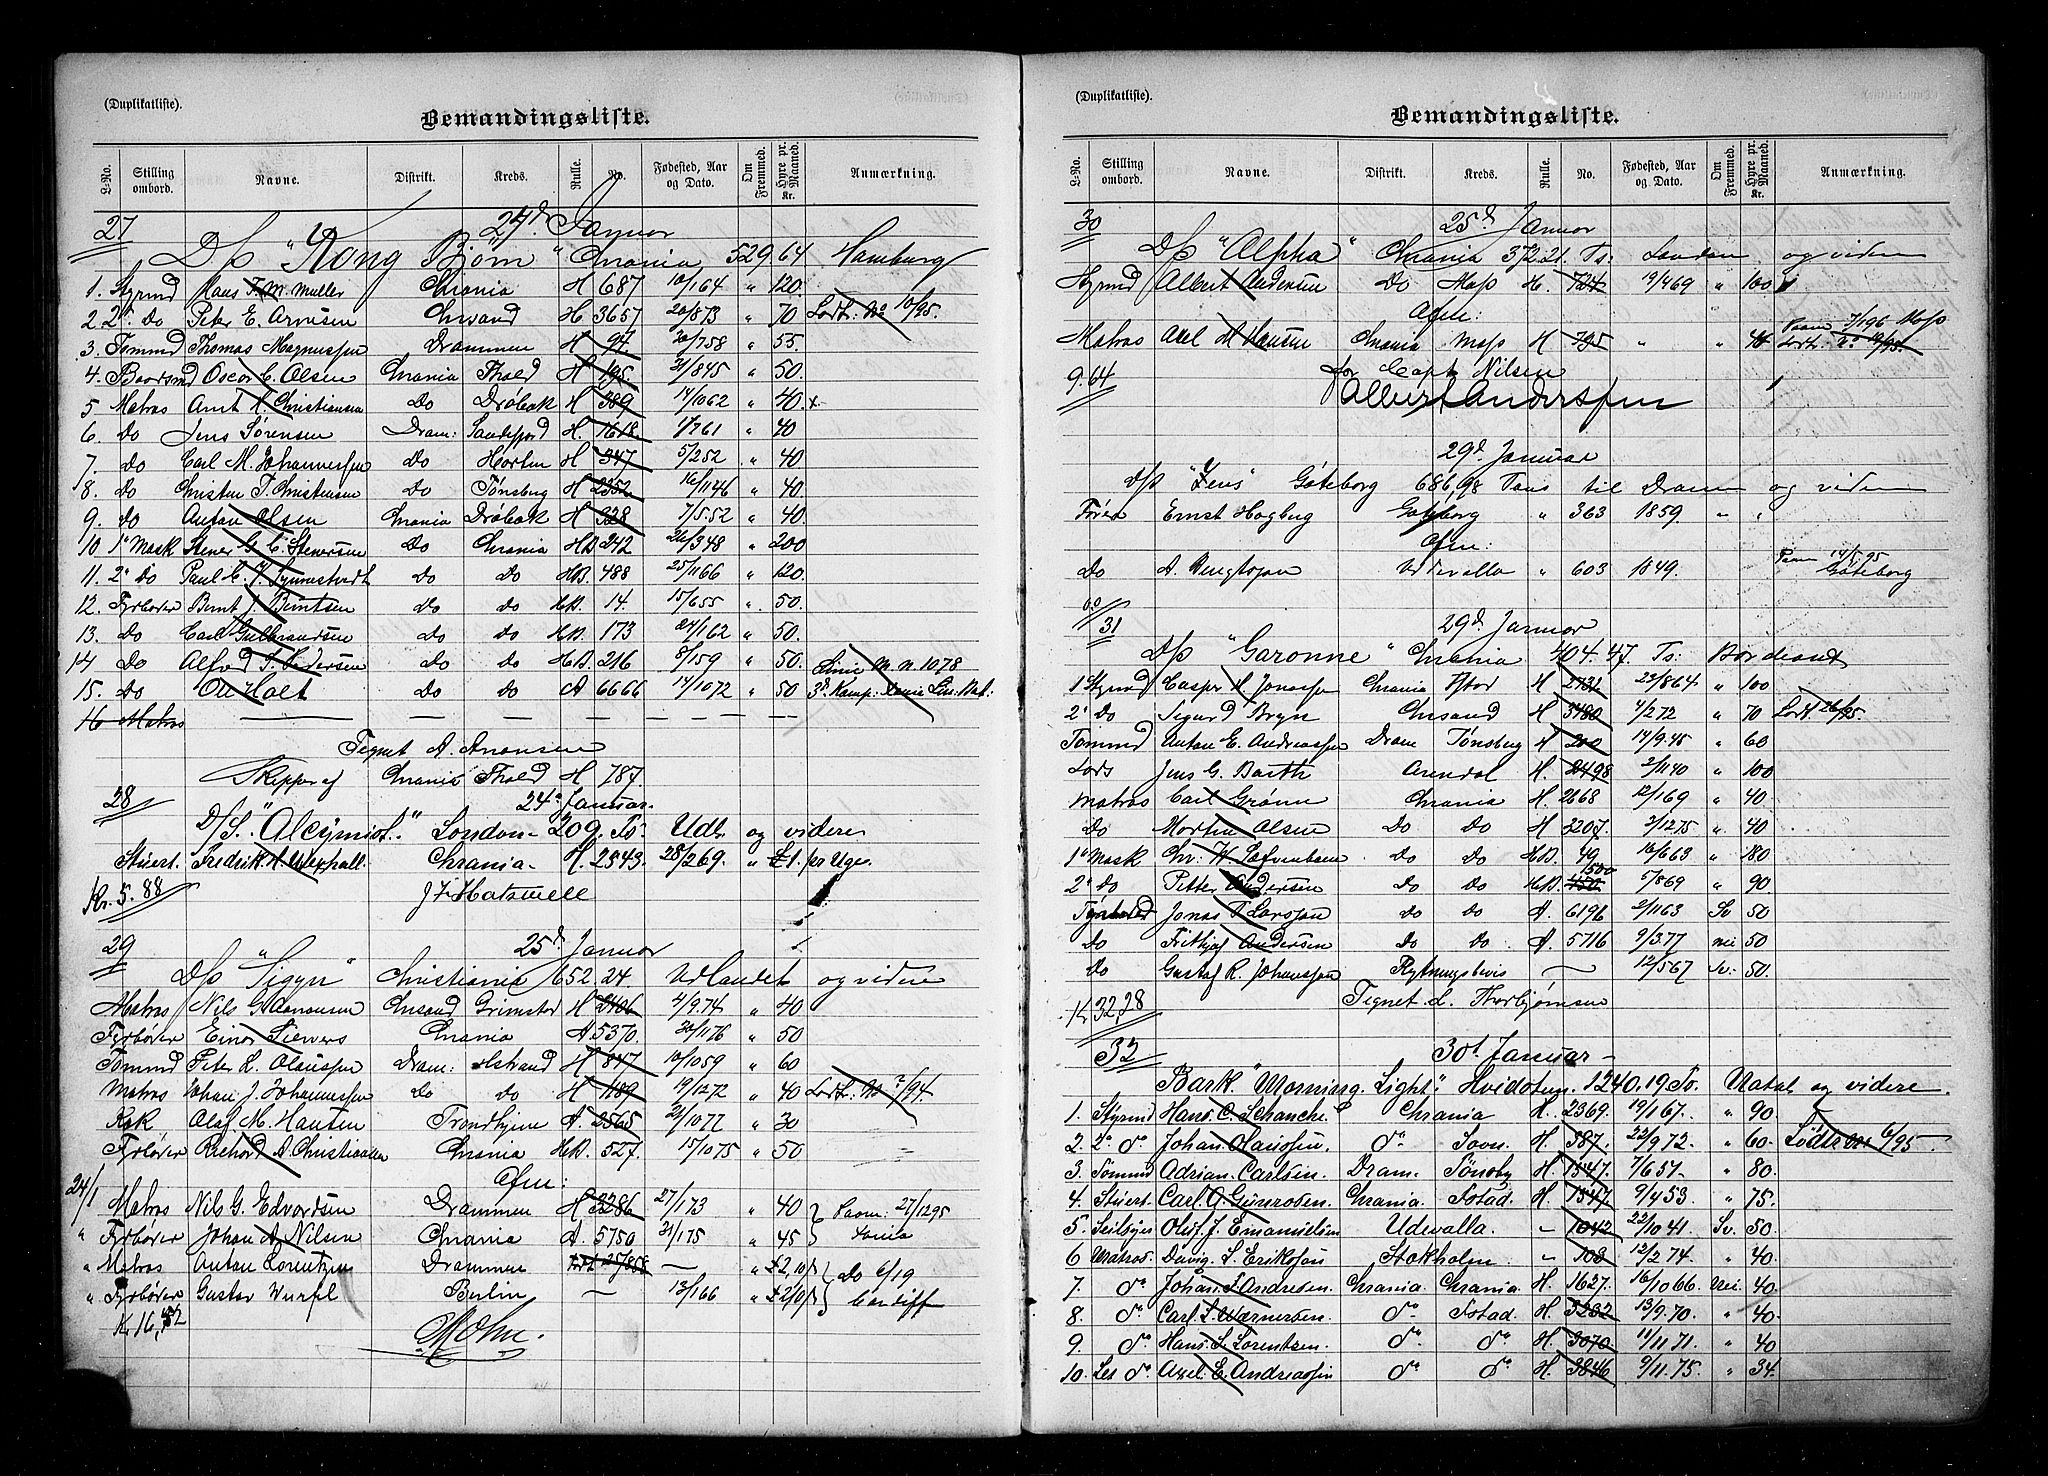 (Duplikatliste).
Bemandingsliste.
L-No. Stilling ombord. Navne. Distrikt. Kreds. Rulle. No. Fødested, Aar og Dato. Om Fremmed. Hyre pr. Maaned. Kr. Anmærkning.
27 24d Januar
D/s "Kong Bjørn" Chrania 529.64 Hamburg
1. Styrmd Hans F. M. Muller Chrania H 687 10/1 64 " 120.
2. 2d Do Peter E. Arntsen Chrsand H 3657 20/8 73 " 70 Lodt: No 10/95.
3. Tømmd Thomas Magnussen Drammen H 94 20/7 58 " 55
4. Baadsmd Oscar C. Olsen Chrania Fhald H 195 31/8 45 " 50.
5 Matros Arnt H. Christiansen Do Drøbak H 389 14/10 62 " 40
6. Do Jens Sørensen Dram: Sandefjord H. 1618 1/7 61 " 40
7. Do Carl M. Johannessen Do Horten H 347 5/2 52 " 40
8. Do Christen F. Christensen Do Tønsberg H 2352 16/11 46 " 40.
9. Do Anton Olsen Chrania Drøbak H 328 7/5.52 " 40.
10 1st Mask Stener G. C. Stenersen Do Chrania HB 242 26/3 48 " 200
11. 2d Do Paul C. J. Do Do HB. 488 25/11 66 " 120.
12. Fyrbøter Bernt J. Berntsen Do Do HB 14. 15/6 55 " 50.
13. Do Carl Gulbrandsen Do Do HB. 173 24/1 62 " 50.
14 Do Alfred J. Pedersen Do Do HB. 216 8/1 59 " 50. Linie M. n. 1078
15. Do Ole Holt Do Do A 6666 14/10 72 " 50 3d Komp:
16 Matros
Tegnet A. Aronsen
Skipper af Chrania Fhald H 787.
28 24d Januar.
D/S. "Alcymist." London - 209. Ts. Udl. og videre
Stuert. Fredrik A. Chrania - H. 2543 28/2 69. " £1. pr Uge.
Kr. 5.88
29 25d Januar
D/s "Sigyn" Christiania 652.24 Udlandet og videre
Matros Nils G. Aanonsen Chrsand Grimstad H 2406 4/9.74 " 40
Fyrbøter Einar Sievers Chrania A 5370. 30/1 76 " 50
Tømmd Peter L. Olaussen Dram: Hstrand H 847 10/10 59 " 60
Matros Johan J. Johannessen Do Do H 1189 19/12 72 " 40 Lodt: No 7/94.
Kok Olaf M. Hansen Trondhjem A. 2565 21/10 77 " 30
Fyrbøter Richard A. Christiansen Chrania HB. 527 15/10 75 " 50
Ofm:
24/1 Matros Nils G. Edvardsen Drammen H 3286 27/1 73 " 40 Paam: 27/12 95
" Fyrbøter Johan A. Nilsen Chrania A. 5750 31/1 75 " 45
" Matros Anton Lorentzen Drammen " £2,10/ Do 6/19
" Fyrbøter Gustav Wurfl Berlin — 13/1 66 " Cardiff
K. 16,52
(Duplikatliste).
Bemandingsliste.
L-No. Stilling ombord. Navne. Distrikt. Kreds. Rulle. No. Fødested, Aar og Dato. Om Fremmed. Hyre pr. Maaned. Kr. Anmærkning.
30 25d Januar
D/s "Alpha" Chrania 372.21. Ts: London og videre
Styrmd Albert Andersen Do Moss H. 724 19/4 69 " 100
Ofm:
Matros Axel M Hansen Chrania Moss H 795 " " Paam 7/1 96 Moss
9.64 for Capt Nilsen
Albert Anderssen
29d Januar
D/s "Jens" Göteborg 686,98 Tons til Dram og videre
Fører Ernst Hogberg Göteborg " 363 1859 " "
Ofm:
Do A. Bengtsson Uddevalla " 603 1849. Paam 14/1 95 Göteborg
31 29d Januar
D/s "Garonne" Chrania 404.47. Ts: Bordeaux
1 Styrmd Casper H. Jonassen Chrania Fstad H 2731 23/8 64 " 100
2d Do Sigurd Bryn Chrsand H 3480 4/2 72 " 70 Lodt 26/95.
Tømmd Anton E. Andreassen Dram Tønsberg H 200 14/9.45 " 60
Lods Jens G. Barth Arendal H. 2498 2/11 40 " 100
Matros Carl Grønn Chrania H. 2668 12/1 69 " 40
Do Morten Olsen Do Do H 3207. 2/12 75 " 40
1st Mask Chr: W. Do Do HB. 49 10/6 63 " 180
2d Do Petter Andersen Do Do HB. 150 1500 5/8 69 " 90
Jonas T. Larsson Do Do A. 6196 2/11 63 Sv 50
Do Frithjof Andersen Do Do A. 5716 9/3.77 nei 50
Do Gustaf R. Johansson Flytningsbevis — 12/5 67 Sv. 50.
K. 32,28 Tegnet L. Thorbjørnsen
32 30d Januar -
Bark "Morning Light," Hvidsten. 1240.19 To. Natal og videre.
1. Styrmd Hans C. Schanche Chrania H. 2369. 19/1 67. " 90.
2. 2d do Johan Hansen. do Sovn. H. 387. 22/9 72. " 60. Lodtr No 6/95.
3 Tømmd Adrian Carlsen. Dram. Tönsbg H. 1347. 7/6 57 " 80
4. Stuert. Carl O. Gundersen. Chrania. Fstad. H. 1347 9/4 53 " 75.
5. Seilsyer Oluf J. Emanuelsen Udevalla. - 1042 22/10 41. Sv. 50
6 Matros. David L. Eriksson Stokholm - 108 12/2 74. " 40.
7 do Johan F. Andresen Chrania Chrania H. 1627. 16/10 66 nei. 40.
8. do Carl L. Wærnersen. do Fstad. H. 3232 13/9.70. " 40
9. do Hans L. Lorentsen. do do H. 3070 11/11 71. " 40
10. Let do Axel E. Andreassen do do H. 3846 9/11.75. " 34.